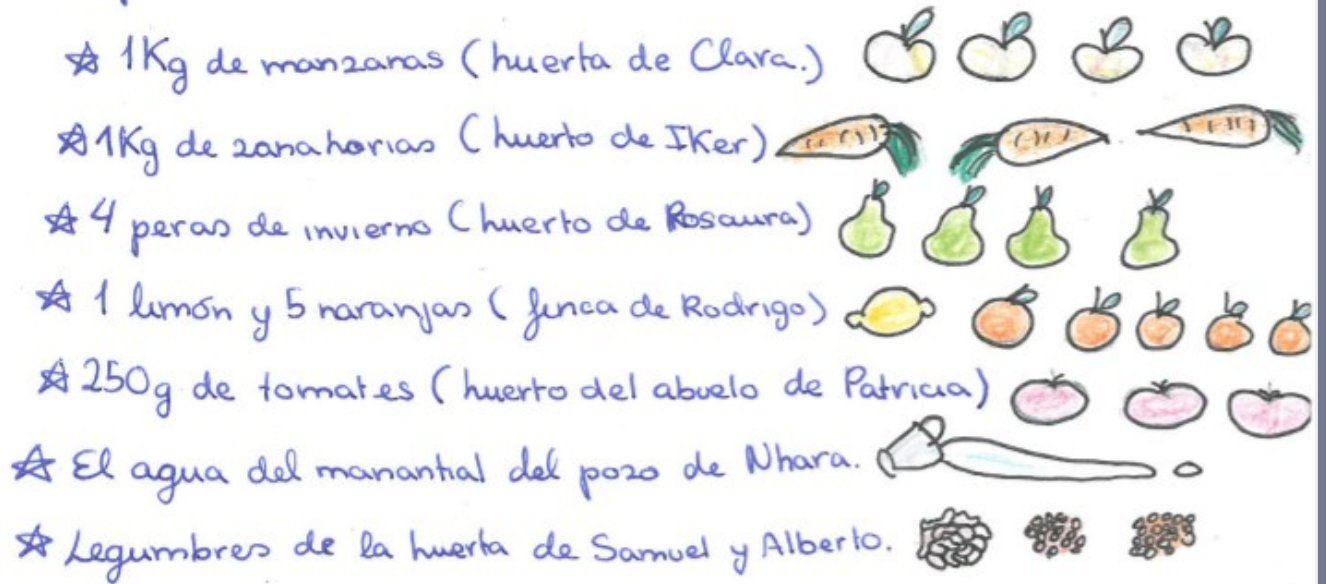 ☆ 1Kg de manzanas (huerta de Clara.)
☆ 1Kg de zanahorias (huerto de IKer)
☆ 4 peras de invierno (huerto de Rosaura)
☆ 1 limón y 5 naranjas (finca de Rodrigo)
☆ 250g de tomates (huerto del abuelo de Patricia)
☆ El agua del manantial del pozo de Nhara.
☆ Legumbres de la huerta de Samuel y Alberto.